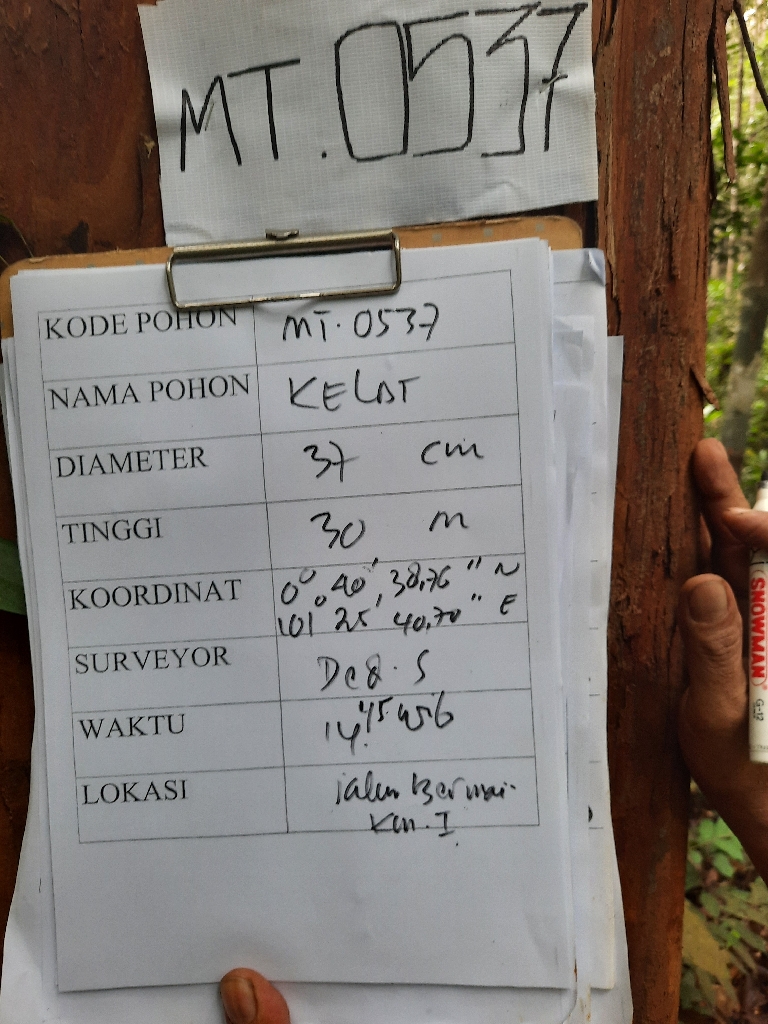 MT.0537
KODE POHON MT.0537
NAMA POHON KELAT
DIAMETER 37 cm
TINGGI 30 m
KOORDINAT 0° 40' 38,76" N
101° 25' 40,70" E
SURVEYOR S
WAKTU 14.45 WIB
LOKASI jalan
Km. I
SNOWMAN
G-12